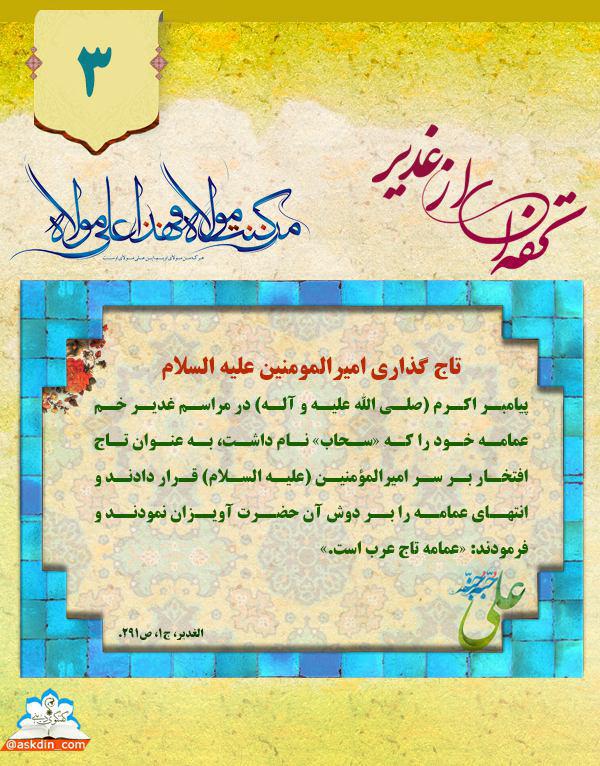 ۳
تحفه‌ای از غدیر
من کنت مولاه و هذا علی مولاه
هر که من مولای اویم این علی مولای اوست
تاج گذاری امیرالمومنین علیه السلام
پیامبر اکرم (صلی الله علیه و آله) در مراسم غدیر خم
عمامه خود را که «سحاب» نام داشت، به عنوان تاج
افتخار بر سر امیرالمؤمنین (علیه السلام) قرار دادند و
انتهای عمامه را بر دوش آن حضرت آویزان نمودند و
فرمودند: «عمامه تاج عرب است.»
علی حبه جنة
الغدیر، ج۱، ص۲۹۱.
@askdin_com